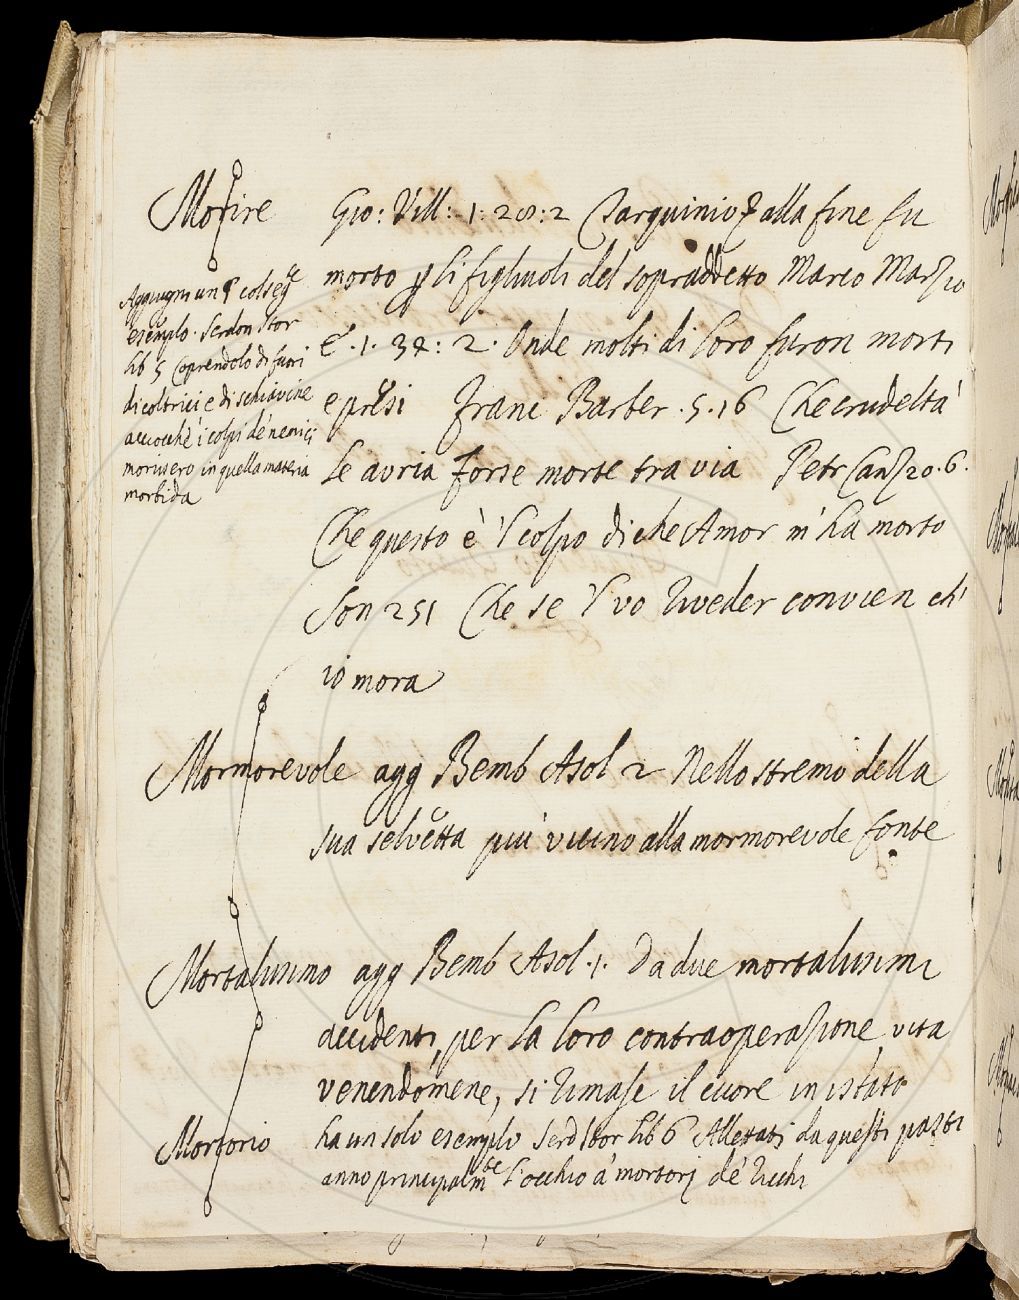 Morire Gio: Vill: 1: 28: 2 Tarquinio alla fine fu
morto p li figliuoli del sopraddetto Marco Marzio
E. 1. 38: 2. Onde molti di loro furon morti
e presi Franc Barber. 5. 16 Che crudeltà
Le avria forse morte tra via Petr Canz 20. 6.
Che questo è 'l colpo di che Amor m'ha morto
Son 251 Che se 'l vo riveder convien ch'
io mora
Aggiugni un
esemplo. Serdon Stor
lib 5 Coprendolo di fuori
di coltrici e di schiavine
acciocchè i colpi de nemici
morissero in quella materia
morbida
Mormorevole agg Bemb Asol 2 Nello stremo della
sua selvetta più vicino alla mormorevole fonte
Mortalissimo agg Bemb Asol. 1. Da due mortalissimi
accidenti, per la loro contraoperazione vita
venendomene, si rimase il cuore in istato
Mortorio ha un solo esemplo Serd Stor lib 6 Allettati da questi pasti
anno principalmte l'occhio a' mortorj de' ricchi